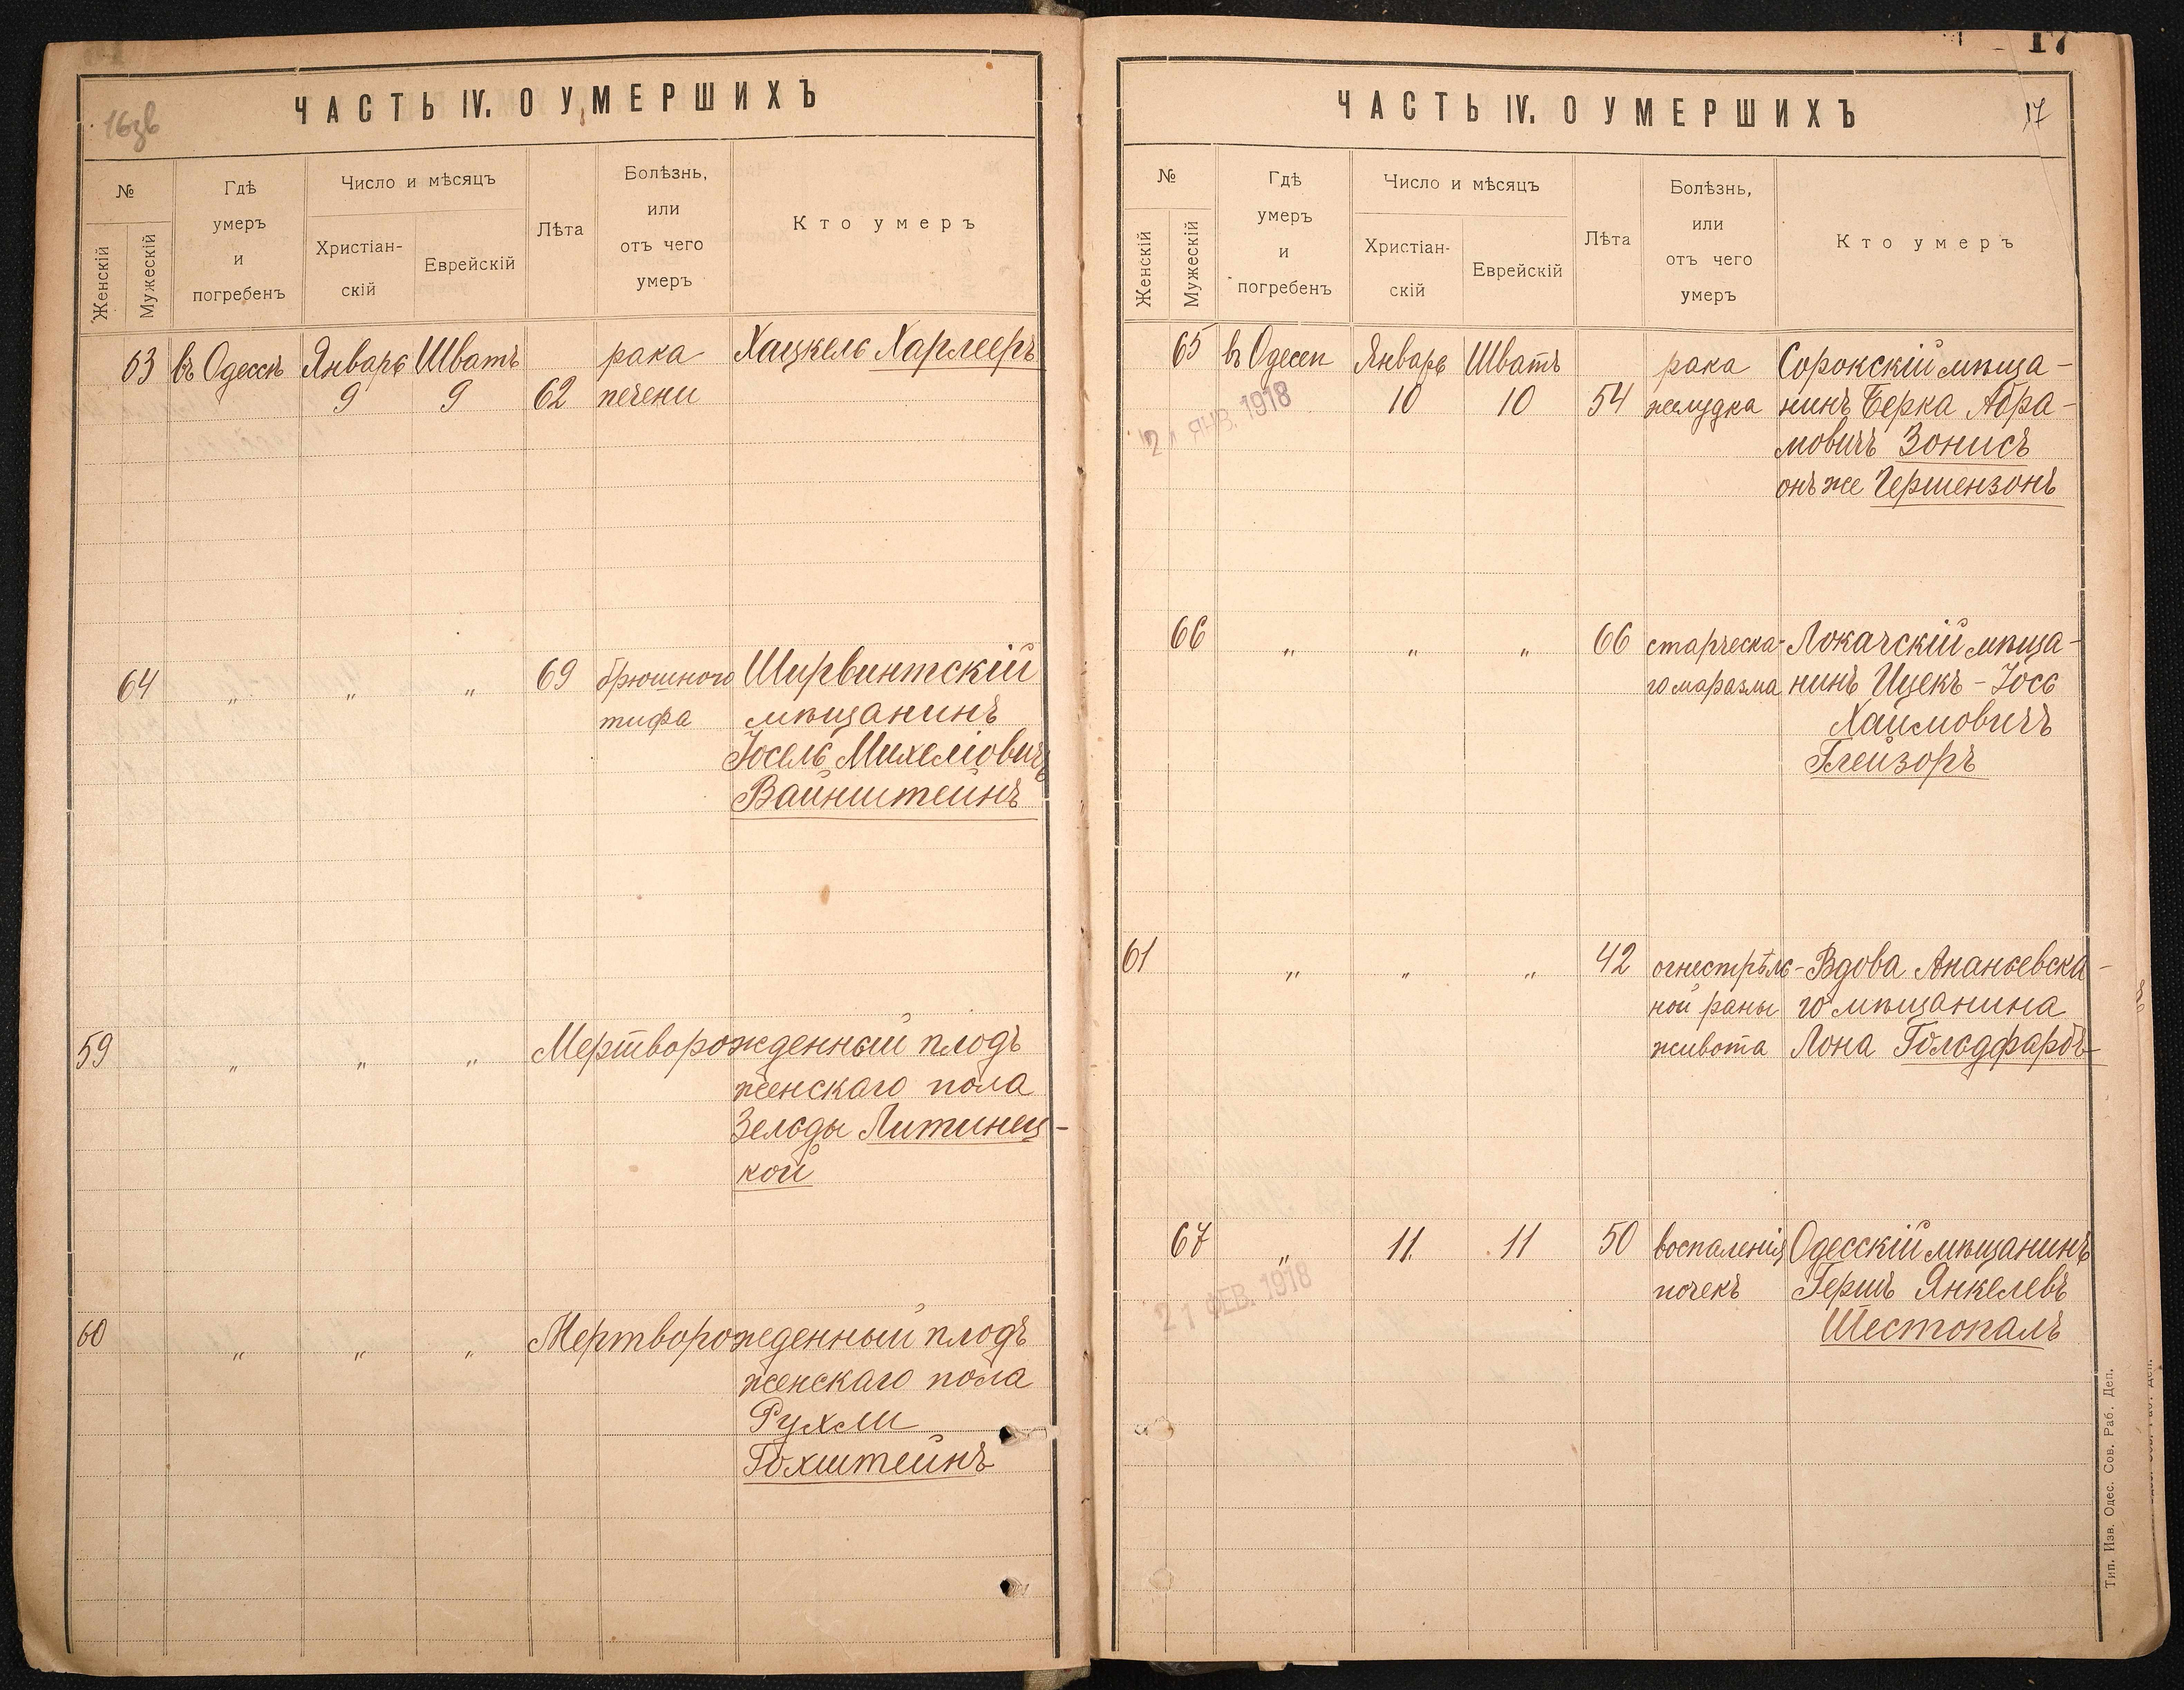 ЧАСТЬ IV. О УМЕРШИХЪ
16зв
№
Женскій
Мужескій
Гдѣ
умеръ
и
погребенъ
Число и мѣсяцъ
Христіан-
скій
Еврейскій
Лѣта
Болѣзнь,
или
отъ чего
умеръ
Кто умеръ
63 въ Одессѣ Январь Шватъ рака Хацкель Харлееръ
9 9 62 печени
64 „ „ „ 69 брюшного Ширвинтскій
тифа мѣщанинъ
Іосель Михелiовичъ
Вайнштейнъ
59 „ „ „ Мертворожденный плодъ
женскаго пола
Зельды Литинец-
кой
60 „ „ „ Мертворожденный плодъ
женскаго пола
Рухли
Гохштейнъ
17
ЧАСТЬ IV. О УМЕРШИХЪ
17
№
Женскій
Мужескій
Гдѣ
умеръ
и
погребенъ
Число и мѣсяцъ
Христіан-
скій
Еврейскій
Лѣта
Болѣзнь,
или
отъ чего
умеръ
Кто умеръ
65 въ Одессѣ Январь Шватъ рака Сорокскій мѣща-
10 10 54 желудка нинъ Берка Абра-
ЯНВ. 1918
мовичъ Зонисъ
онъ же Гершензонъ
66 „ „ „ 66 старческа- Локачскій мѣща-
го маразма нинъ Ицекъ-Іось
Хаимовичъ
Глейзоръ
61 „ „ „ 42 огнестрѣль- Вдова Ананьевска-
ной раны го мѣщанина
живота Лона Гольдфарбъ
67 „ 11. 11 50 воспаленія Одесскій мѣщанинъ
почекъ Гершъ Янкелевъ
21 ФЕВ. 1918
Шестопалъ
Тип. Изв. Одес. Сов. Раб. Деп.